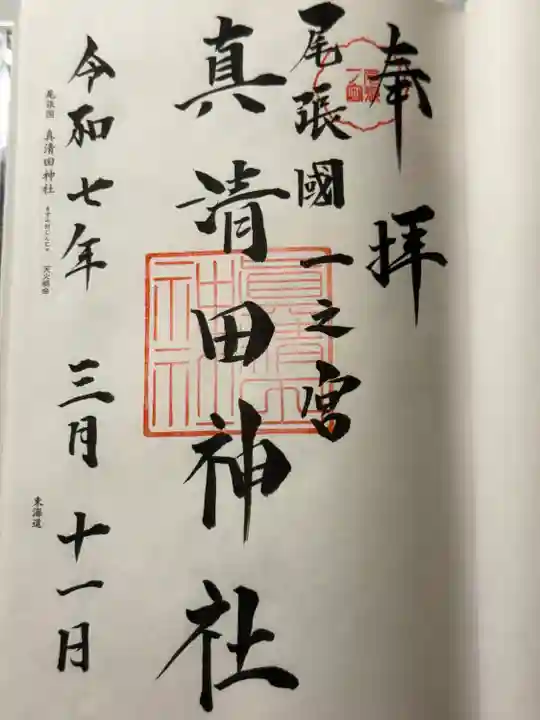 奉拝
尾張國一之宮
真清田神社
令和七年 三月 十一日
尾張国 真清田神社 ますみだじんじゃ 天火明命
東海道
真清田
神社